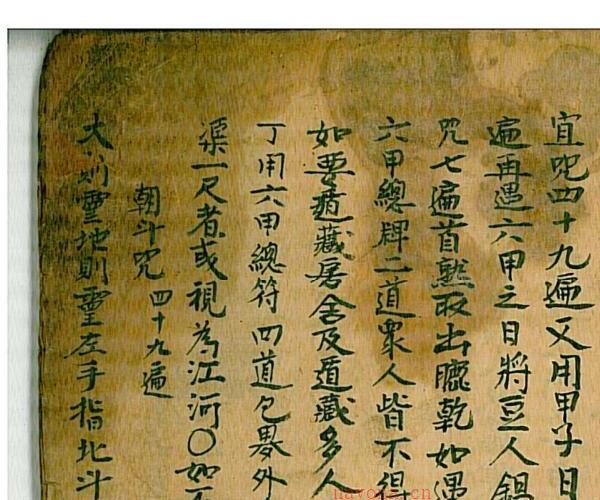 宜咒四十九遍又用甲子日
遍再遇六甲之日將豆人鎖
咒七遍首熟取出晒乾如遇
六甲總牌二道眾人皆不得
如要遁藏房舍及遁藏多人
丁用六甲總符四道包畧外
渠一尺者或視為江河〇如不
朝斗咒 四十九遍
大 靈地則靈左手指北斗